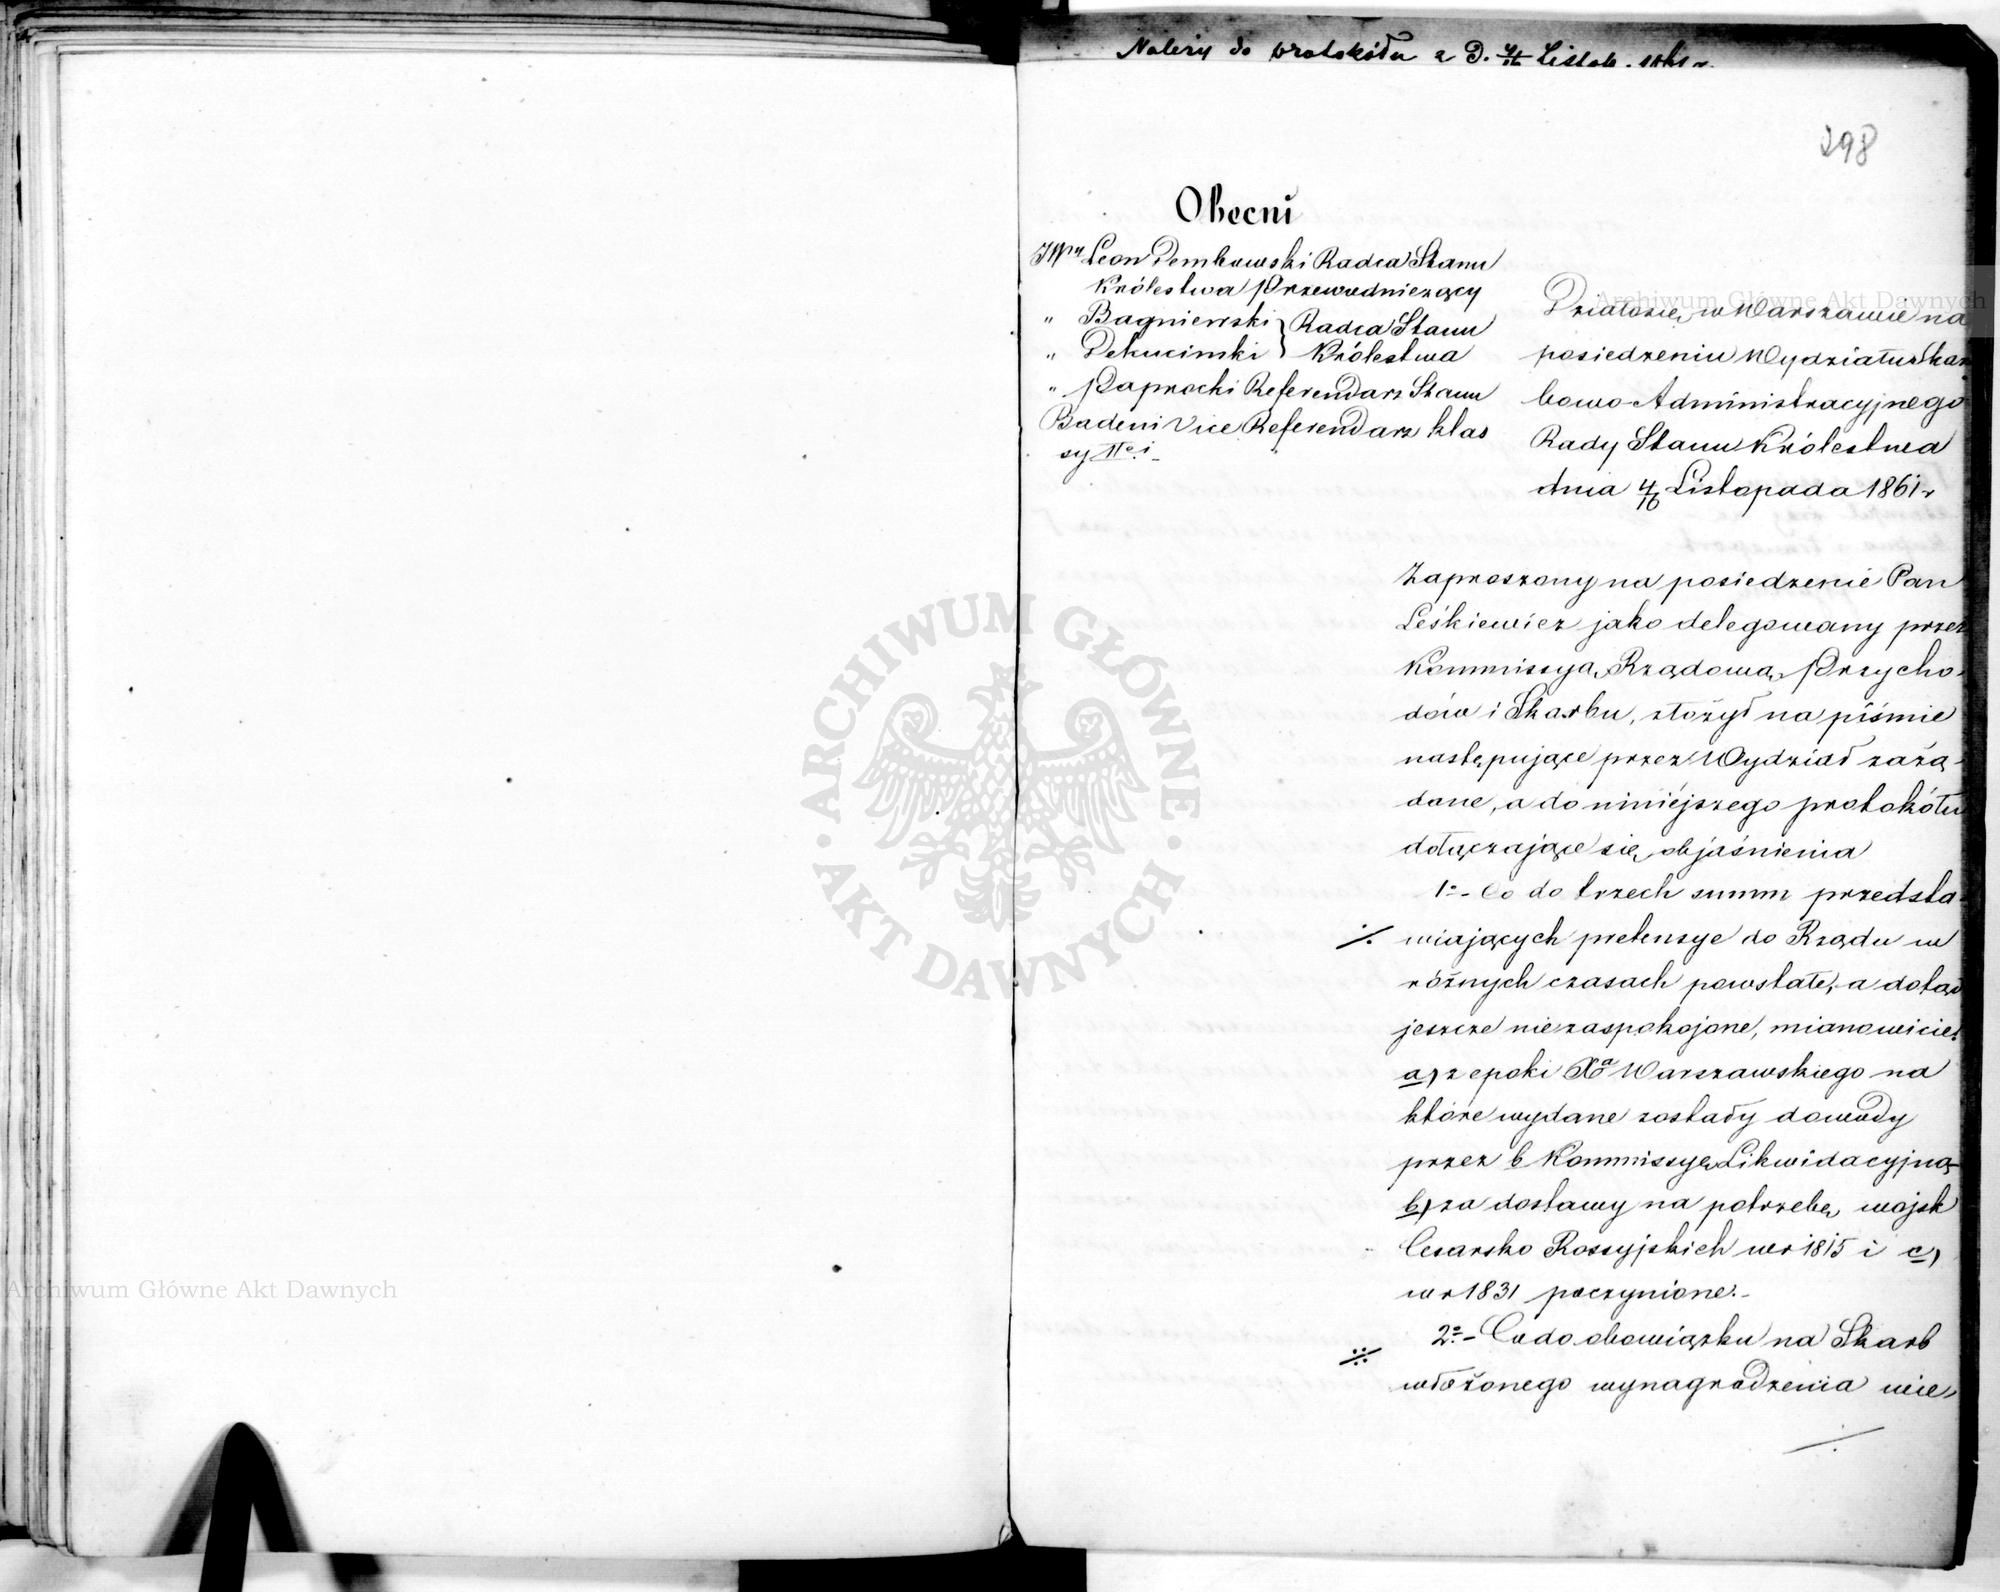 Należy do protokółu z D. 4/16 Listop. 1861 r.
298
Obecni
JWny Leon Dembowski Radca Stanu
Królestwa Przewodniczący
" Bagniewski } Radca Stanu
" Dekucinski } Królestwa
" Paprocki Referendarz Stanu
Badeni Vice Referendarz klas
sy IIéj
Działo się w Warszawie na
posiedzeniu Wydziału Skar
bowo-Administracyjnego
Rady Stanu Królestwa
dnia 4/16 Listopada 1861 r
Zaproszony na posiedzenie Pan
Leśkiewicz jako delegowany przez
Kommissyą Rządową Przycho-
dów i Skarbu, złożył na piśmie
następujące przez Wydział zażą-
dane, a do niniéjszego protokółu
dołączające się objaśnienia
1o - Co do trzech summ przedsta-
./. wiających pretensye do Rządu w
różnych czasach powstałe, a dotąd
jeszcze niezaspokojone, mianowicie:
a, z epoki Xa Warszawskiego na
które wydane zostały dowody
przez b Kommissyę Likwidacyjną
b, za dostawy na potrzebę wojsk
Cesarsko Rossyjskich w r 1815 i c,
w r 1831 poczynione.-
2o - Co do obowiązku na Skarb
włożonego wynagrodzenia wie-
./.
Archiwum Główne Akt Dawnych
ARCHIWUM GŁÓWNE · AKT DAWNYCH ·
Archiwum Główne Akt Dawnych